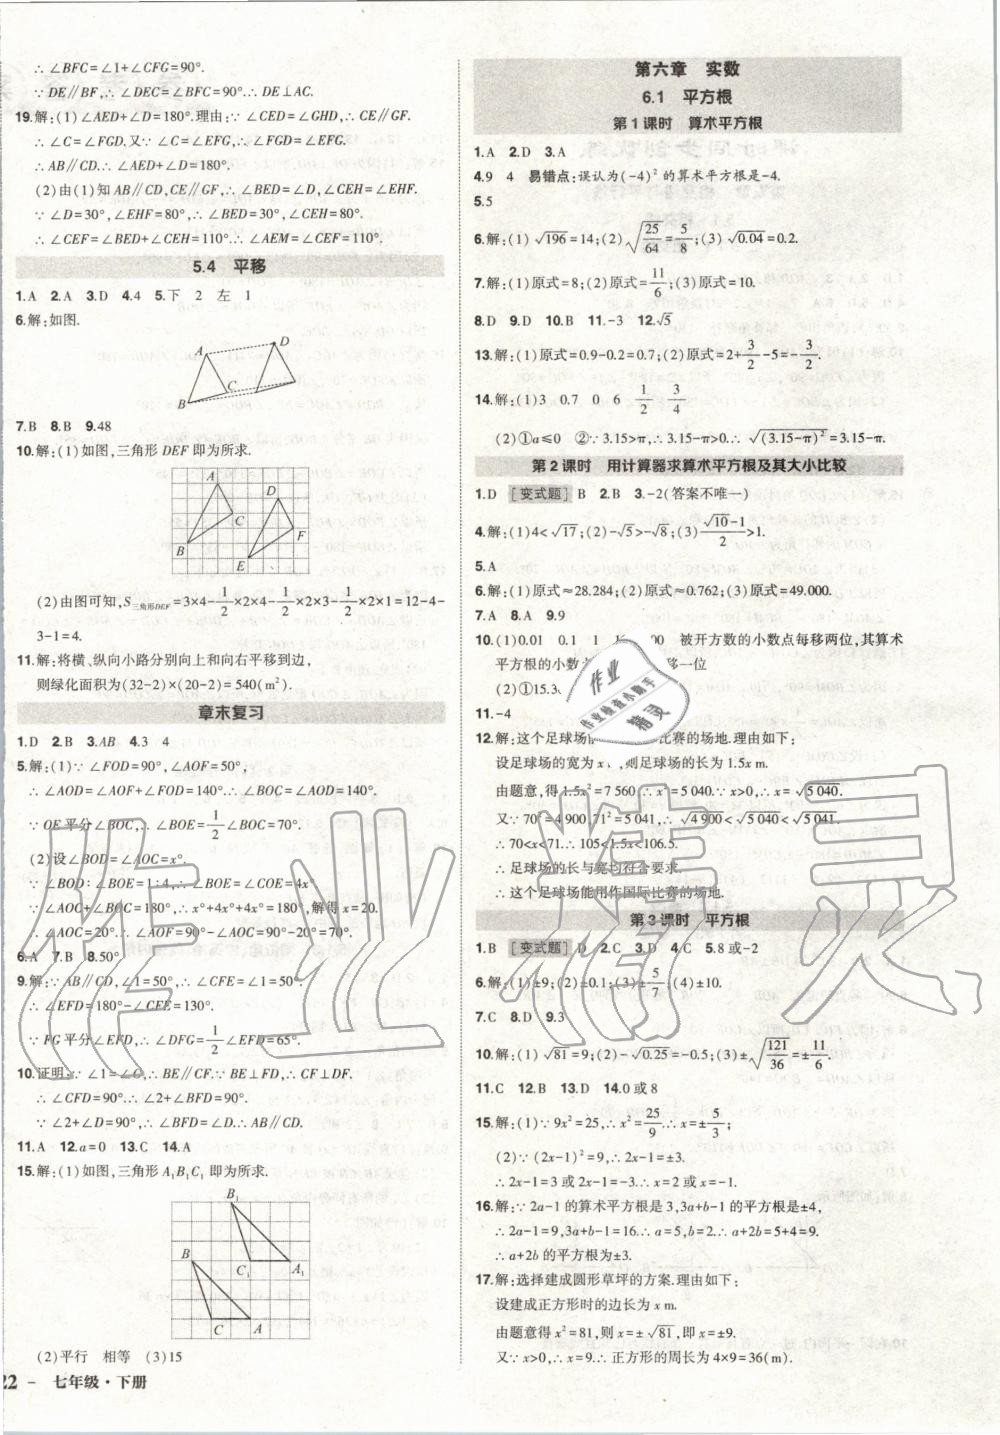 ∴ ∠BFC=∠1+∠CFG=90°.
∵ DE∥BF,∴ ∠DEC=∠BFC=90°.∴ DE⊥AC.
19.解:(1)∠AED+∠D=180°.理由:∵ ∠CED=∠GHD,∴ CE∥GF.
∴ ∠C=∠FGD.又∵ ∠C=∠EFG,∴ ∠FGD=∠EFG.
∴ AB∥CD.∴ ∠AED+∠D=180°.
(2)由(1)知 AB∥CD,CE∥GF,∴ ∠BED=∠D,∠CEH=∠EHF.
∵ ∠D=30°,∠EHF=80°,∴ ∠BED=30°,∠CEH=80°.
∴ ∠CEF=∠BED+∠CEH=110°.∴ ∠AEM=∠CEF=110°.
5.4 平移
1.A 2.A 3.D 4.4 5.下 2 左 1
6.解:如图.
A D
B C
7.B 8.B 9.48
10.解:(1)如图,三角形 DEF 即为所求.
A D
C
B F
E
(2)由图可知,S三角形DEF=3×4-1/2×2×4-1/2×2×3-1/2×2×1=12-4-
3-1=4.
11.解:将横、纵向小路分别向上和向右平移到边,
则绿化面积为(32-2)×(20-2)=540(m²).
章末复习
1.D 2.B 3.AB 4.3 4
5.解:(1)∵ ∠FOD=90°,∠AOF=50°,
∴ ∠AOD=∠AOF+∠FOD=140°.∴ ∠BOC=∠AOD=140°.
∵ OE 平分∠BOC,∴ ∠BOE=1/2∠BOC=70°.
(2)设∠BOD=∠AOC=x°.
∵ ∠BOD:∠BOE=1:4,∴ ∠BOE=∠COE=4x°.
∵ ∠AOC+∠BOC=180°,∴ x°+4x°+4x°=180°,解得 x=20.
∴ ∠AOC=20°.∴ ∠AOF=90°-∠AOC=90°-20°=70°.
6.A 7.B 8.50°
9.解:∵ AB∥CD,∠1=50°,∴ ∠CFE=∠1=50°.
∴ ∠EFD=180°-∠CFE=130°.
∵ FG 平分∠EFD,∴ ∠DFG=1/2∠EFD=65°.
10.证明:∵ ∠1=∠C,∴ BE∥CF.∵ BE⊥FD,∴ CF⊥DF.
∴ ∠CFD=90°.∴ ∠2+∠BFD=90°.
∵ ∠2+∠D=90°,∴ ∠BFD=∠D.∴ AB∥CD.
11.A 12.a=0 13.C 14.A
15.解:(1)如图,三角形 A₁B₁C₁ 即为所求.
B₁
B C₁ A₁
C A
(2)平行 相等 (3)15
22 - 七年级·下册
第六章 实数
6.1 平方根
第 1 课时 算术平方根
1.A 2.D 3.A
4.9 4 易错点:误认为(-4)² 的算术平方根是-4.
5.5
6.解:(1)√196=14;(2)√(25/64)=5/8;(3)√0.04=0.2.
7.解:(1)原式=8;(2)原式=11/6;(3)原式=10.
8.D 9.D 10.B 11.-3 12.√5
13.解:(1)原式=0.9-0.2=0.7;(2)原式=2+3/2-5=-3/2.
14.解:(1)3 0.7 0 6 1/2 3/4
(2)①a≤0 ②∵ 3.15>π,∴ 3.15-π>0.∴ √(3.15-π)²=3.15-π.
第 2 课时 用计算器求算术平方根及其大小比较
1.D [变式题] B 2.B 3.-2(答案不唯一)
4.解:(1)4<√17;(2)-√5>-√8;(3)(√10-1)/2>1.
5.A
6.解:(1)原式≈28.284;(2)原式≈0.762;(3)原式≈49.000.
7.A 8.A 9.9
10.(1)0.01 0.1 1 被开方数的小数点每移两位,其算术
平方根的小数点 移一位
(2)①15.3
11.-4
12.解:这个足球场能 比赛的场地.理由如下:
设足球场的宽为 x ,则足球场的长为 1.5x m.
由题意,得 1.5x²=7 560,∴ x²=5 040.∵ x>0,∴ x=√5 040.
又∵ 70²=4 900,71²=5 041,∴ √4 900<√5 040<√5 041.
∴ 70<x<71.∴ 105<1.5x<106.5.
∴ 足球场的长与宽均符合要求.
∴ 这个足球场能用作国际比赛的场地.
第 3 课时 平方根
1.B [变式题] D 2.C 3.D 4.C 5.8 或-2
6.解:(1)±9;(2)±0.1;(3)±5/7;(4)±10.
7.C 8.D 9.3
10.解:(1)√81=9;(2)-√0.25=-0.5;(3)±√(121/36)=±11/6.
11.C 12.B 13.D 14.0 或 8
15.解:(1)∵ 9x²=25,∴ x²=25/9.∴ x=±5/3;
(2)∵ (2x-1)²=9,∴ 2x-1=±3.
∴ 2x-1=3 或 2x-1=-3.∴ x=2 或 x=-1.
16.解:∵ 2a-1 的算术平方根是 3,3a+b-1 的平方根是±4,
∴ 2a-1=9,3a+b-1=16.∴ a=5,b=2.∴ a+2b=5+4=9.
∴ a+2b 的平方根为±3.
17.解:选择建成圆形草坪的方案.理由如下:
设建成正方形时的边长为 x m.
由题意得 x²=81,则 x=±√81,即 x=±9.
又∵ x>0,∴ x=9.∴ 正方形的周长为 4×9=36(m).
作业
作业检查小助手
精灵
作业精灵